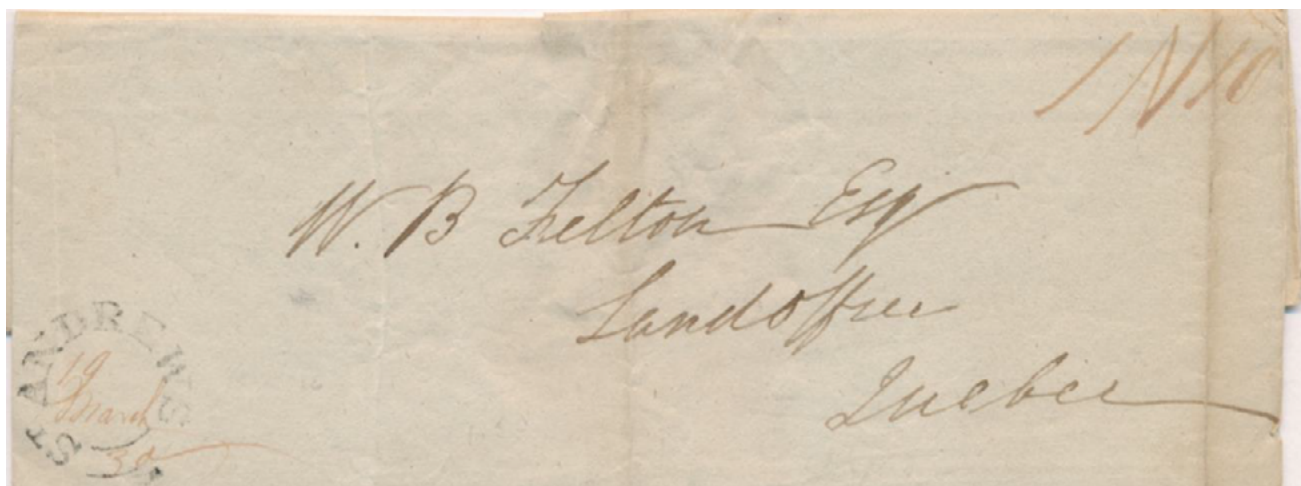 1N10
W. B Felton Esq
Land Office
Quebec
ST ANDREWS
19
March
30